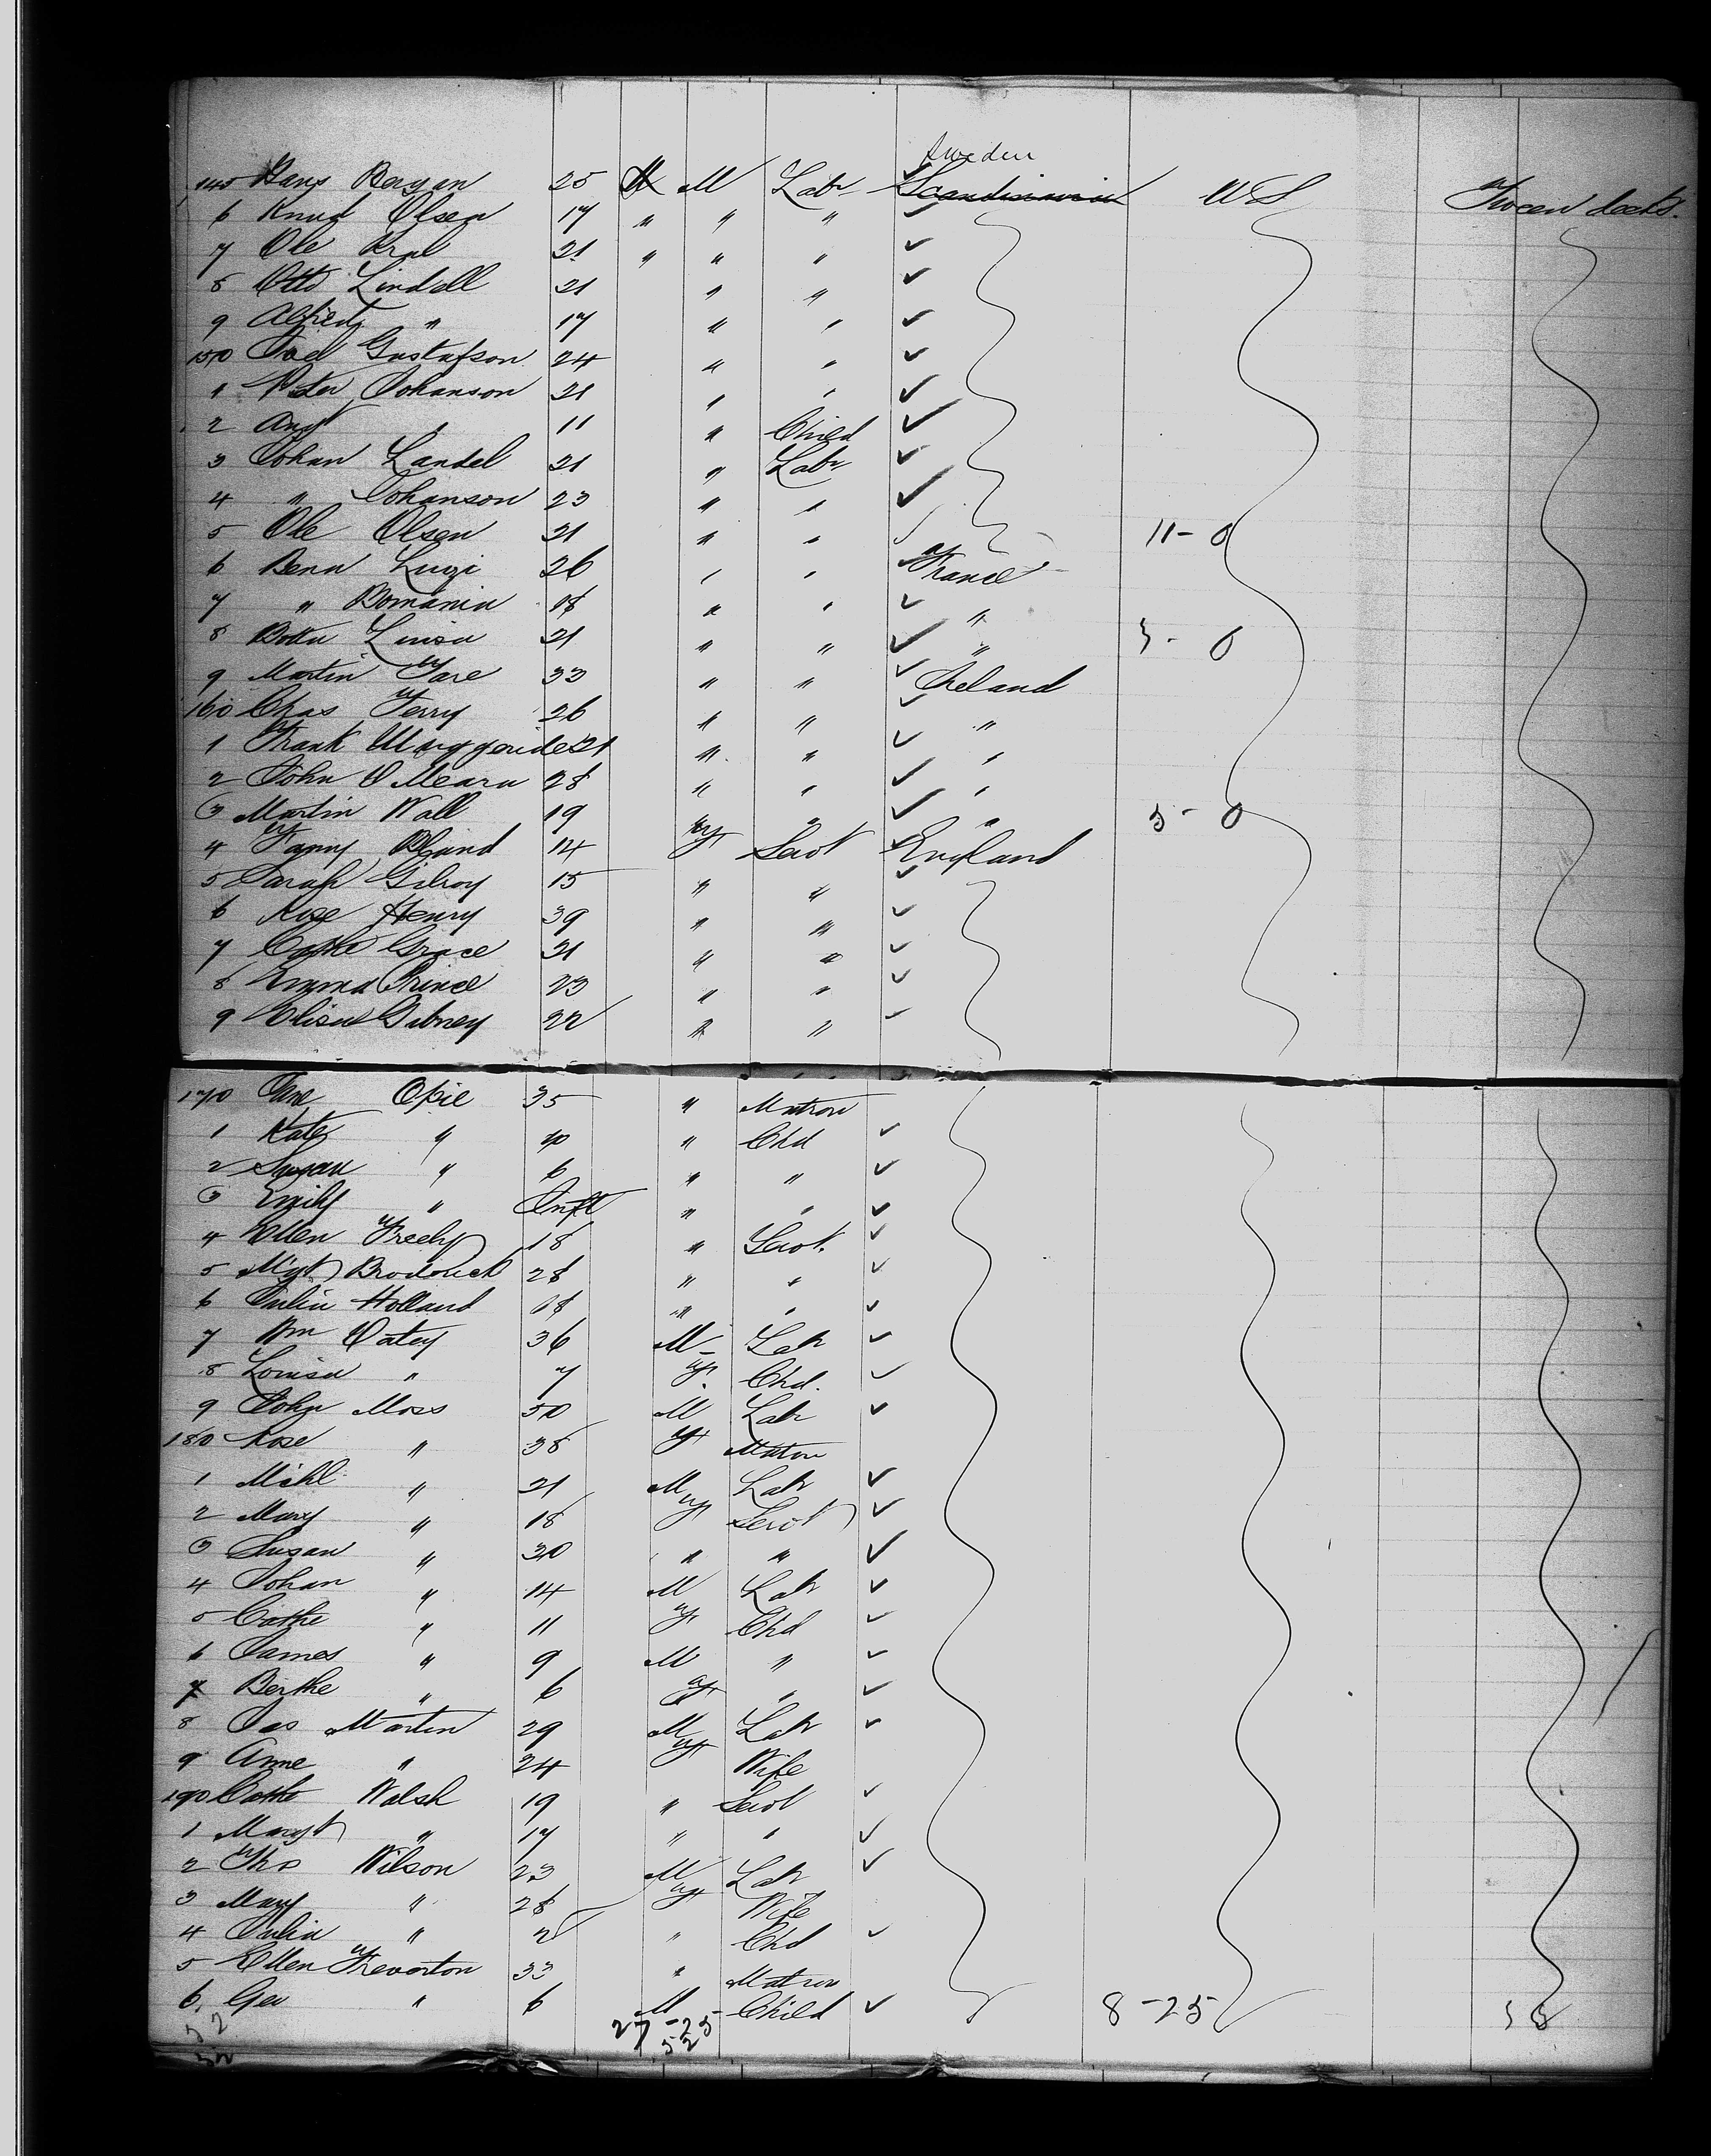 Sweden
145 Hans Bergan 25 M M Labr Scandinavia U S Tween decks.
6 Knud Olsen 17 " " " "
7 Ole Kral 21 " " "
8 Otto Lindell 21 " "
9 Alfred " 17 " "
150 Joel Gustafson 24 " "
1 Peter Johanson 21 " "
2 Aug " 11 " Child
3 Johan Landel 21 " Labr
4 " Johanson 23 " "
5 Ole Olsen 21 " " 11 - 0
6 Benn Luigi 26 " " France
7 " Romania 18 " " "
8 Botta Louisa 21 " " " 3 - 0
9 Martin Tare 33 " " Ireland
160 Chas Terry 26 " " "
1 Frank Muggeride 21 " " "
2 John O Meara 28 " " "
3 Martin Wall 19 " " " 5 - 0
4 Fanny Bland 14 F Servt England
5 Sarah Gilroy 15 " "
6 Rose Henry 39 " "
7 Cathe Grace 21 " "
8 Emma Prince 23 " "
9 Elisa Gibney 22 " "
170 Jane Opie 35 " Matron
1 Kate " 10 " Chd
2 Susan " 6 " "
3 Emily " Inft " "
4 Ellen Freely 18 " Servt.
5 Mgt Broderick 28 " "
6 Julia Holland 18 " "
7 Wm Oatey 36 M Labr
8 Louisa " 7 F Chd.
9 John Moss 50 M Labr
180 Rose " 38 F Matron
1 Michl " 21 M Labr
2 Mary " 18 F Servt
3 Susan " 30 " "
4 Johan " 14 M Labr
5 Cathe " 11 F Chd
6 James " 9 M "
7 Berthe " 6 F "
8 Jas Martin 29 M Labr
9 Anne " 24 F Wife
190 Cathe Walsh 19 " Servt
1 Margt " 17 " "
2 Thos Wilson 23 M Labr
3 Mary " 28 F Wife
4 Julia " 2 " Chd
5 Ellen Treverton 33 " Matron
6. Geo " 6 M Child 8 - 25
52 27 - 25
52 52